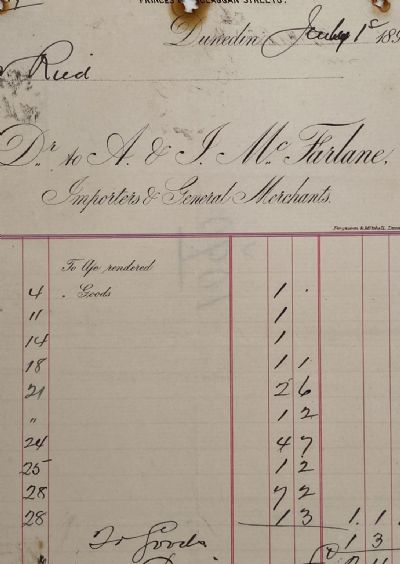 PRINCES & MACLAGGAN STREETS.
Dunedin July 1st 189
Reid
Dr. to A. & J. McFarlane,
Importers & General Merchants.
Fergusson & Mitchell, Dun
To A/c rendered
4 . Goods 1 .
11 1
14 1
18 1 1
21 2 6
" 1 2
24 4 7
25 1 2
28 7 2
28 1 3 1. 1.
To Goods 1 3